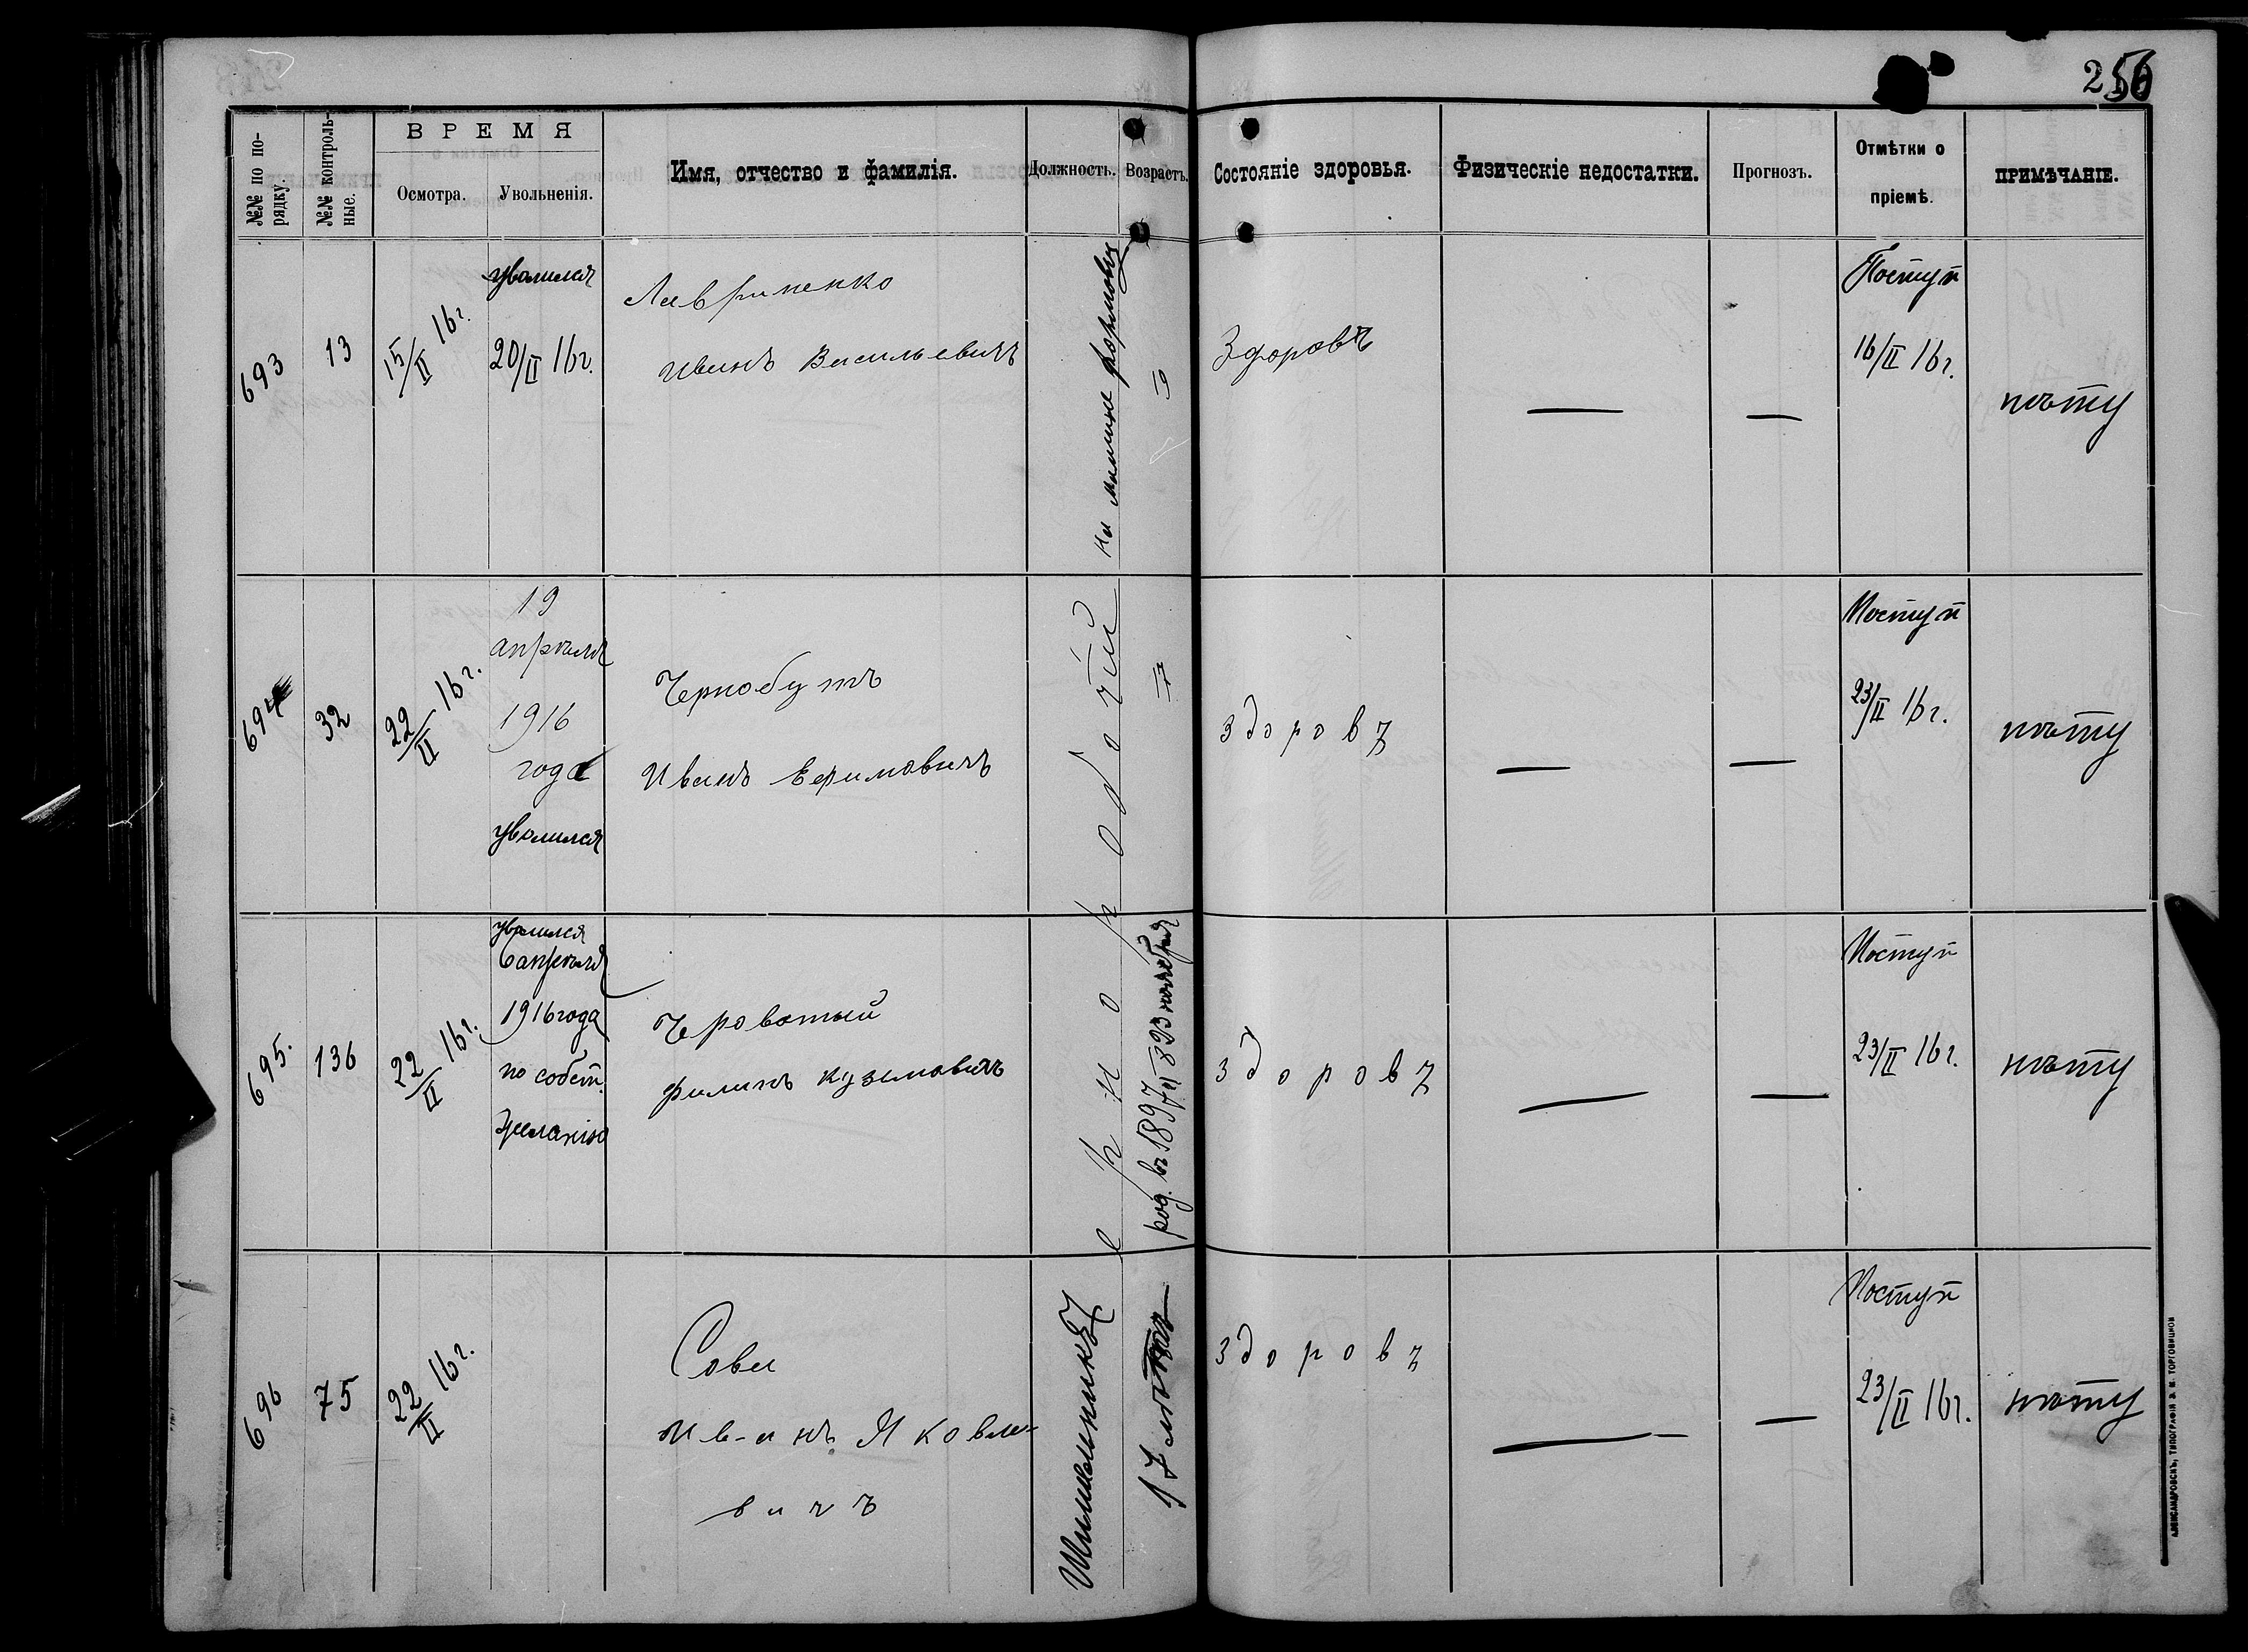 256
№№ по по-
рядку.
№№ контроль-
ные.
ВРЕМЯ
Осмотра.
Увольненія.
Имя, отчество и фамилія.
Должность.
Возрастъ.
Состояніе здоровья.
Физическіе недостатки.
Прогнозъ.
Отмѣтки о
пріемѣ.
ПРИМѢЧАНІЕ.
693
13
15/II 16г.
уволился
20/II 16г.
Лавриненко
Иванъ Васильевичъ
на машине формовщ
Здоровъ
—
—
Поступ
16/II 16г.
нѣту
694
32
22/II 16г.
19
апрѣля
1916
года
уволился
Чернобутъ
Иванъ Ефимовичъ
чернорабочій
17
здоровъ
—
—
Поступ
23/II 16г.
нѣту
695.
136
22/II 16г.
уволился
6 апрѣля
1916 года
по собст.
желанію
Череватый
Филипъ Кузьмовичъ
род. въ 1897 г. 23 ноября
здоровъ
—
—
Поступ
23/II 16г.
нѣту
696
75
22/II 16г.
Сова
Иванъ Яковле-
вичъ
Шишельникъ
17 лѣтъ
здоровъ
—
—
Поступ
23/II 16г.
нѣту
АЛЕКСАНДРОВСКЪ, ТИПОГРАФІЯ Э. М. ТОРГОВИЦКОЙ